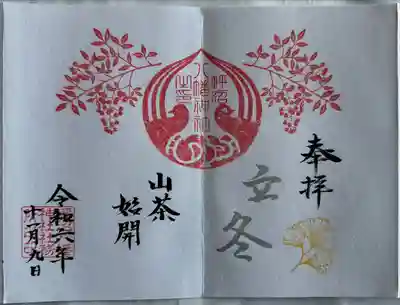 奉拝
立冬
八幡神社
山茶
始開
令和六年
十一月九日